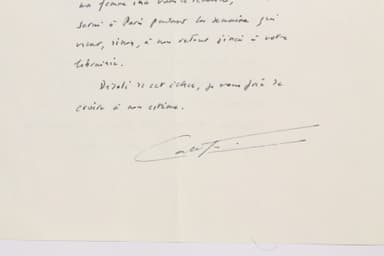 ma femme
serai à Paris pendant la semaine qui
vient, sinon, à mon retour j'irai à votre
librairie.
Désolé de cet échec, je vous prie de
croire à mon estime.